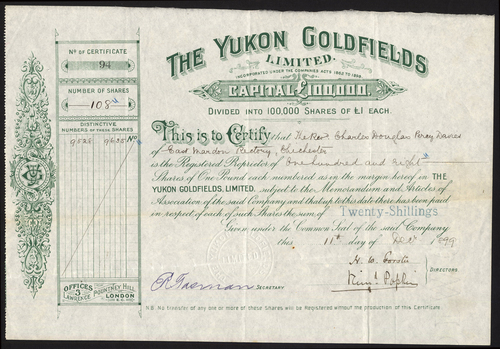 Nº OF CERTIFICATE
94
NUMBER OF SHARES
108
DISTINCTIVE
NUMBERS OF THESE SHARES
9528 9635
OFFICES
3
LAWRENCE
POUNTNEY HILL
LONDON
E.C.
THE YUKON GOLDFIELDS
LIMITED.
INCORPORATED UNDER THE COMPANIES ACTS 1862 TO 1898.
CAPITAL £100,000.
DIVIDED INTO 100,000 SHARES OF £1 EACH.
This is to Certify that The Rev. Charles Douglas Percy Davies
of East Mardon Rectory, Chichester
is the Registered Proprietor of One hundred and eight
Shares of One Pound each numbered as in the margin hereof in THE
YUKON GOLDFIELDS, LIMITED. subject to the Memorandum and Articles of
Association of the said Company and that up to this date there has been paid
in respect of each of such Shares the sum of Twenty-Shillings
Given under the Common Seal of the said Company
this 11th day of 1899
DIRECTORS.
SECRETARY
N.B. No transfer of any one or more of these Shares will be Registered without the production of this Certificate.